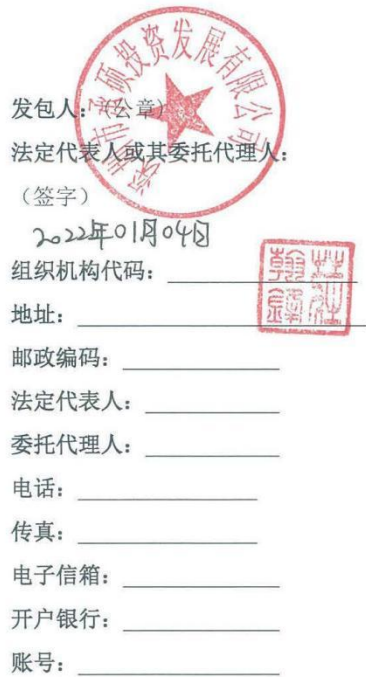 发包人：（公章）
深圳市 硕投资发展有限公司
法定代表人或其委托代理人：
（签字）
2022年01月04日
组织机构代码：
地址：
邮政编码：
法定代表人：
委托代理人：
电话：
传真：
电子信箱：
开户银行：
账号：